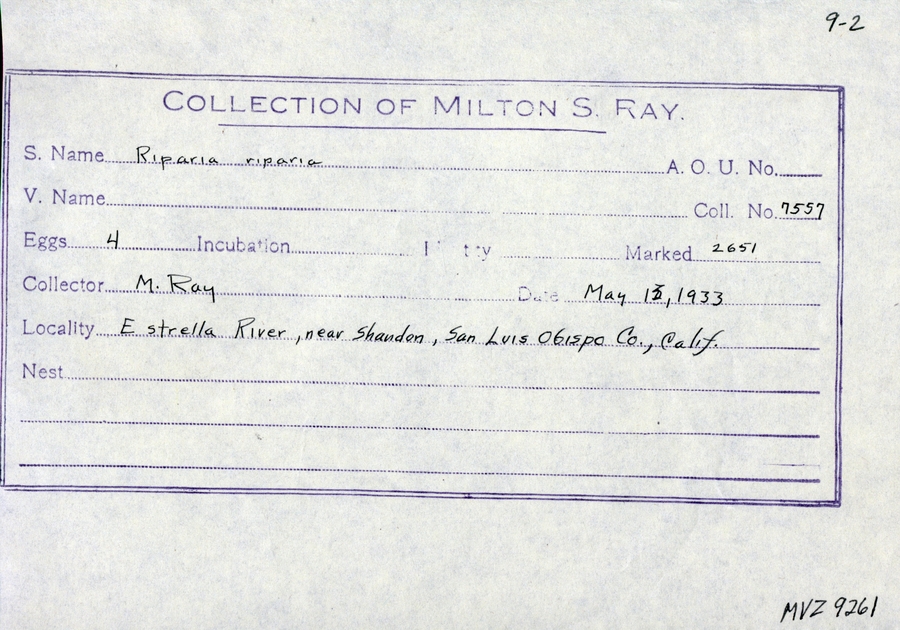 9-2
COLLECTION OF MILTON S. RAY.
S. Name Riparia riparia A. O. U. No.
V. Name Coll. No. 7557
Eggs 4 Incubation Marked 2651
Collector M. Ray Date May , 1933
Locality Estrella River, near Shandon, San Luis Obispo Co., Calif.
Nest
MVZ 9261